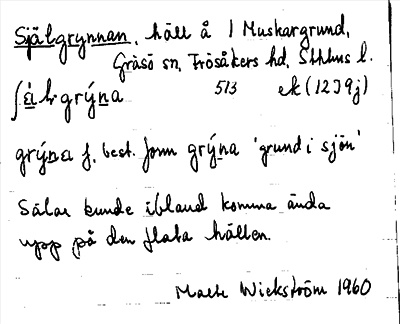 Själgrynnan, häll å l Muskargrund,
Gräsö sn, Frösåkers hd, Sthlms l.
513 ek (12J9j)
grýna f. best. form grýna 'grund i sjön'
Sälar kunde ibland komma ända
upp på den flata hällen.
Malte Wickström 1960